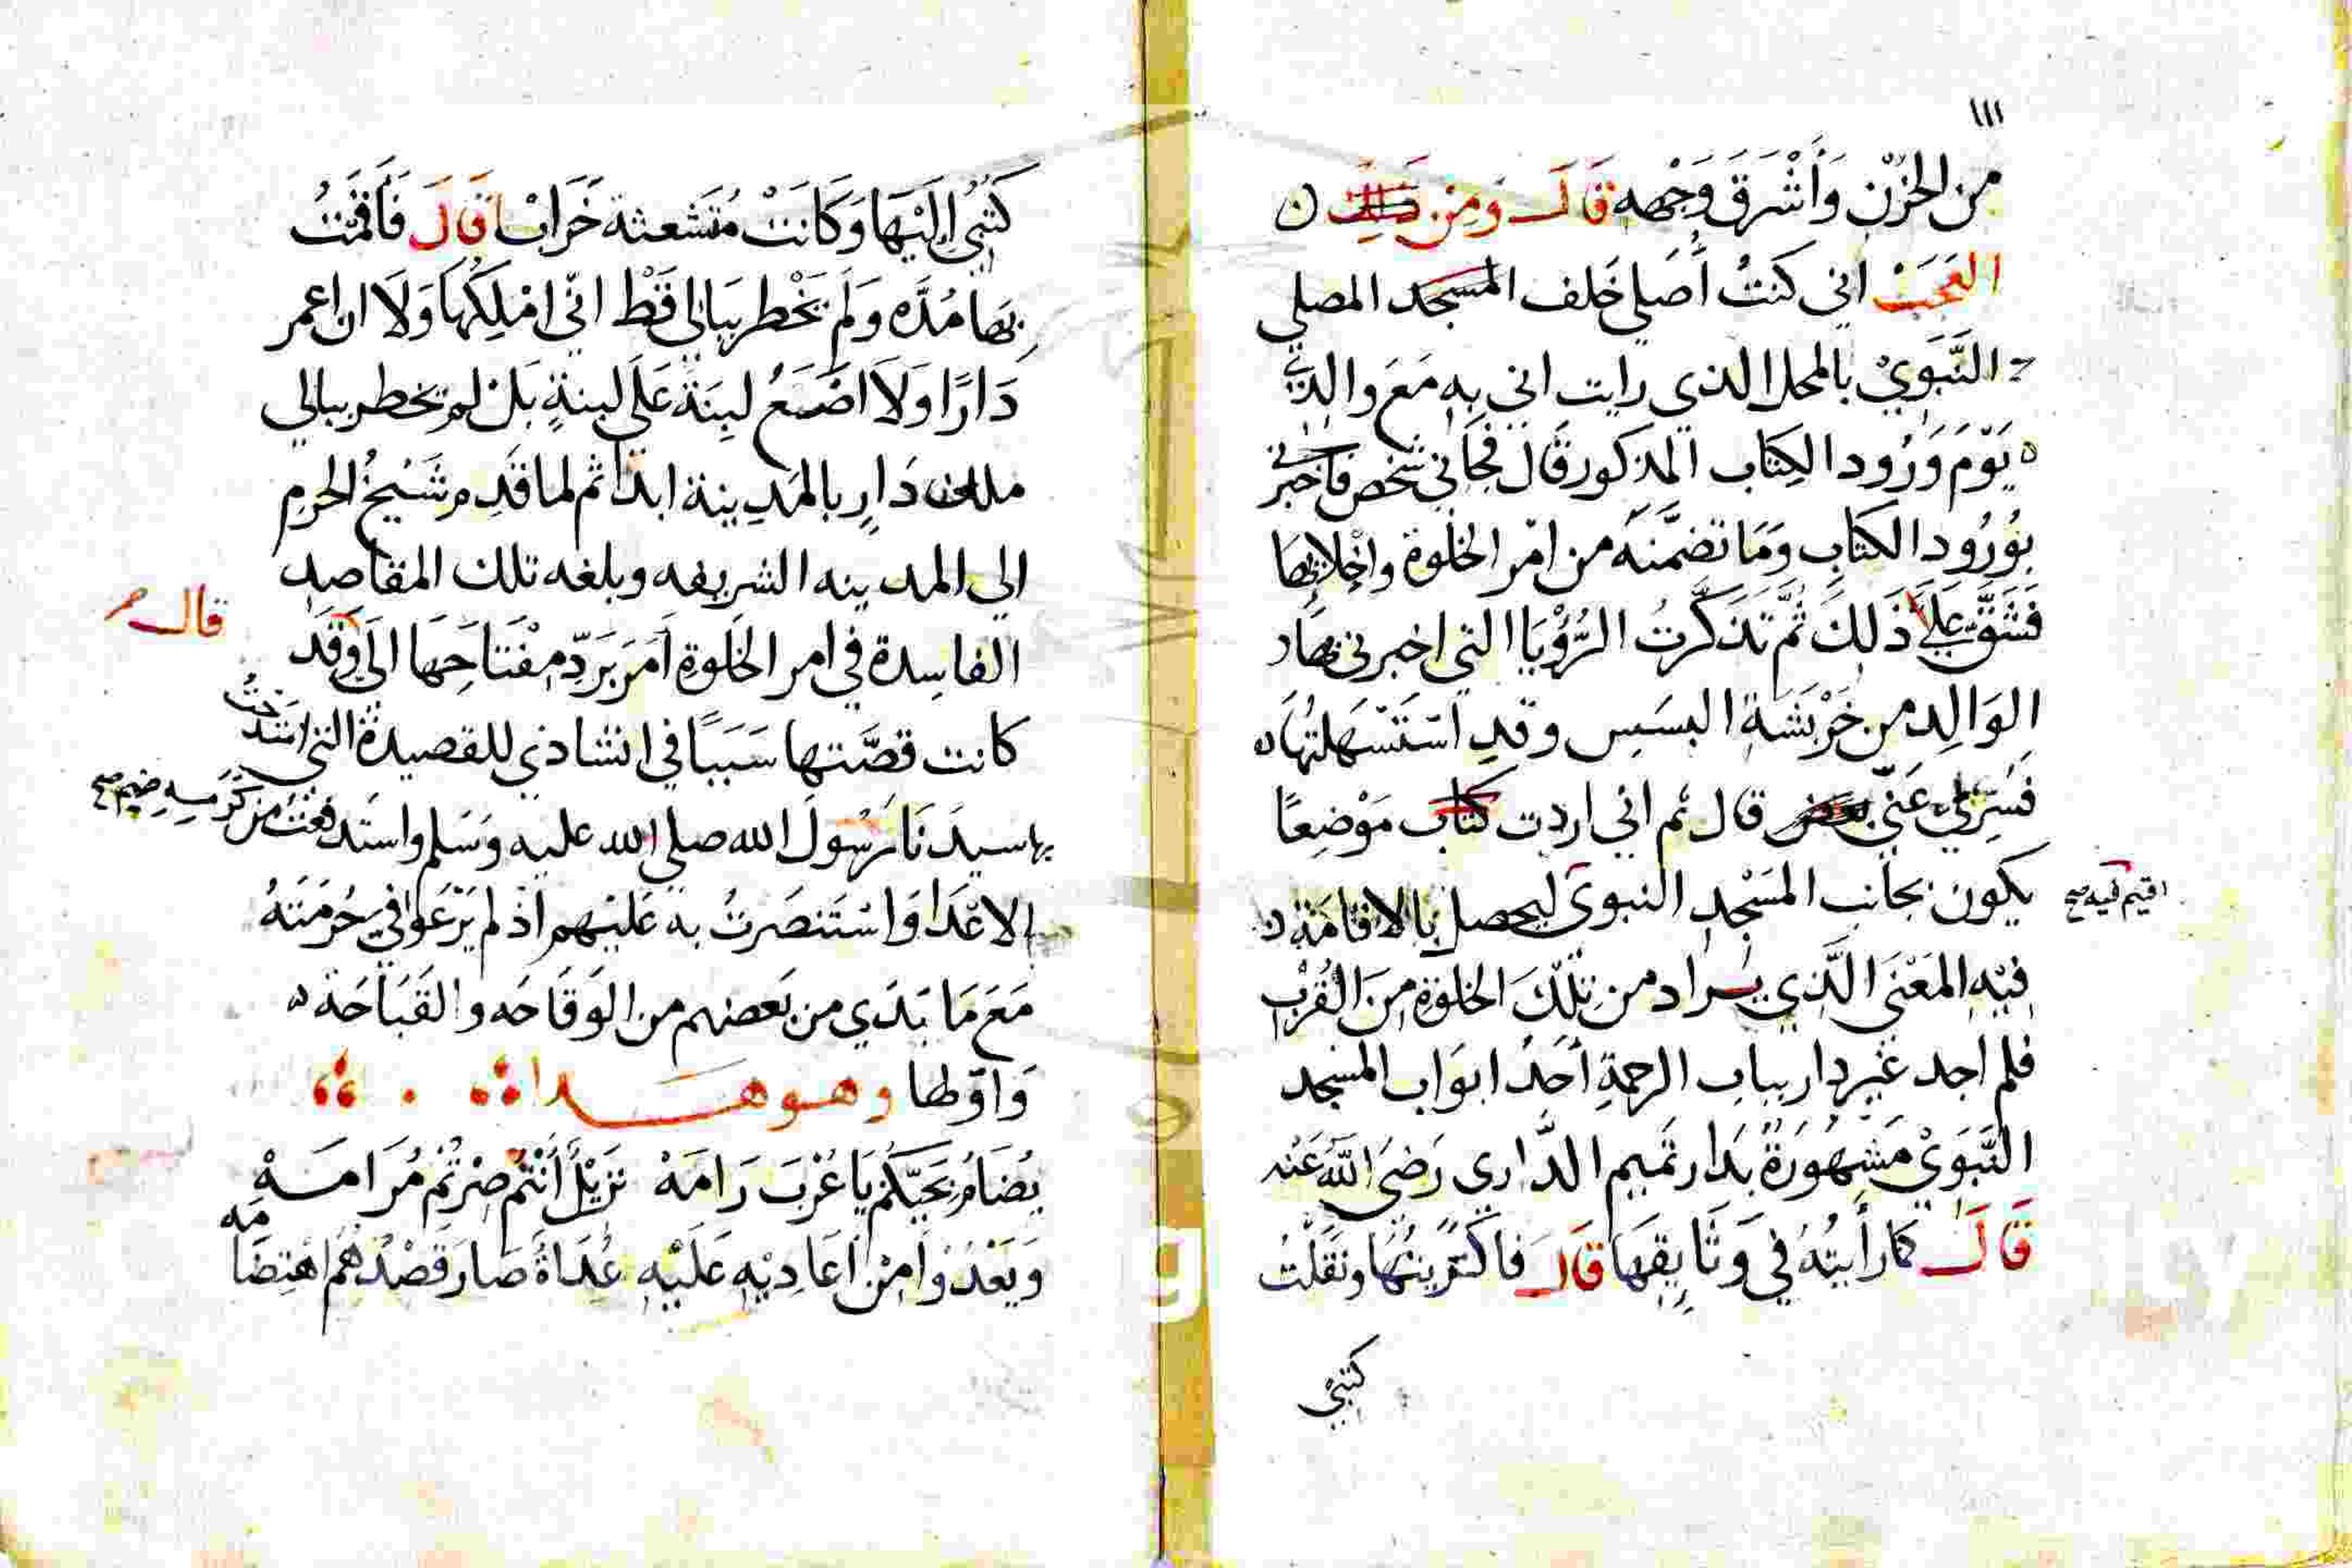 ١١١
من الحُزْنِ وَأَشْرَقَ وَجْهه قَالَ وَمِن
العَجَبْ اني كنتُ أصَلي خَلف المسجد المصلي
النَّبَوَيْ بالمحل الذي رايت اني بِهِ مَعَ والدي
يَوْمَ وَرُود الكِتَاب المذكور قَال فجَاني شخص فاخبرني
بوُرُود الكتَابِ وَمَا تضمَّنَهُ من امْر الخلوة واخْلايهَا
فَشَقَّ عَلَيَّ ذَلِكَ ثُمَّ تَذَكَّرتُ الرُّؤْيَا التي اخبرني بهَا
الوَالِد من خَرْبَشَةِ البسَبِس وقدِ اسْتَسْهَلتهَا
فَسُرِّيَ عَنِّي قال ثم اني اردت كتاب مَوْضِعًا
يكون بجانب المَسْجِدِ النبوي ليحصل بالاقامَة
اقيم فيه صح
فِيْهِ المَعْنَى الَّذِي يُراد من تِلْكَ الخلوَةِ مِنَ القُرْبِ
فلم اجد غير دار بباب الرحمةِ أحَدُ ابوَاب المسجد
النَّبَوَيْ مَشهُورَةُ بدَار تَميم الدَّاري رَضيَ اللهُ عَنْه
قَالَ كما رأيتُهُ في وَثَايِقِهَا قَالَ فاكتَرَيتُهَا ونقَلْتُ
كتبي
كتُبي اليْهَا وَكَانَتْ مُتَشعثة خَرَابًا قَالَ فَأقَمْتُ
بِهَا مُدَّه وَلَم يَخْطر ببَالي قَطْ انّي امْلِكهَا وَلَا ان اعمر
دَارًا وَلَا اضَعُ لبِنَةً عَلَى لبنةٍ بَل لم يخطر ببالي
ملك دَارٍ بالمَدِينة ابدًا ثم لما قَدِم شَيْخُ الحرم
الي المدينه الشريفه وبلغه تلك المقاصد
الفاسِدة في امر الخَلوَةِ اَمَرَ بَرَدِّ مِفْتَاحِهَا الَي وَقَد
قال
كانت قصَّتها سَبَبًا في انشاذي للقصيدة التي امتَدَحْتُ
بها سيدَنَا رَسُولَ الله صلى الله عليه وَسَلم واستدفعْتُ من كَرَمِهِ
الاعْدَا وَاسْتَنصَرتُ به عَليْهم اذ لم يَرْعَوا في حُرمَتَهُ
مَعَ مَا بَدَى من بَعضهم من الوَقَاحَه والقَبَاحَة
وَاوّلها وهو هَذا
يُضَامُ نزيلكُم يَا عُرْبَ رَامَهْ نزِيْلُ أَنْتُم صِرْتُم مُرَامَهْ
وَيَعْدُوْا مِنْ اَعَادِيْهِ عَلَيْهِ عُدَاةُ صَارَ قَصْدُهُم اهْتِضَامَه